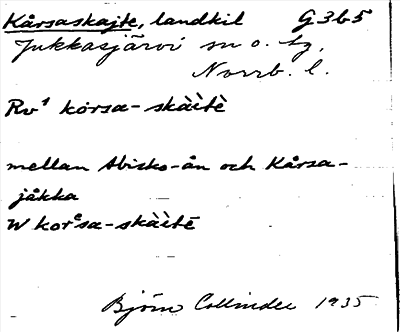 Kårsaskajte, landkil G3b5
Jukkasjärvi sn o. tg,
Norrb. l.
Rv¹ kórsa-skàitè
mellan Abisko-ån och Kårsa-
jåkka
W korᵉsa-skàitē
Björn Collinder 1935